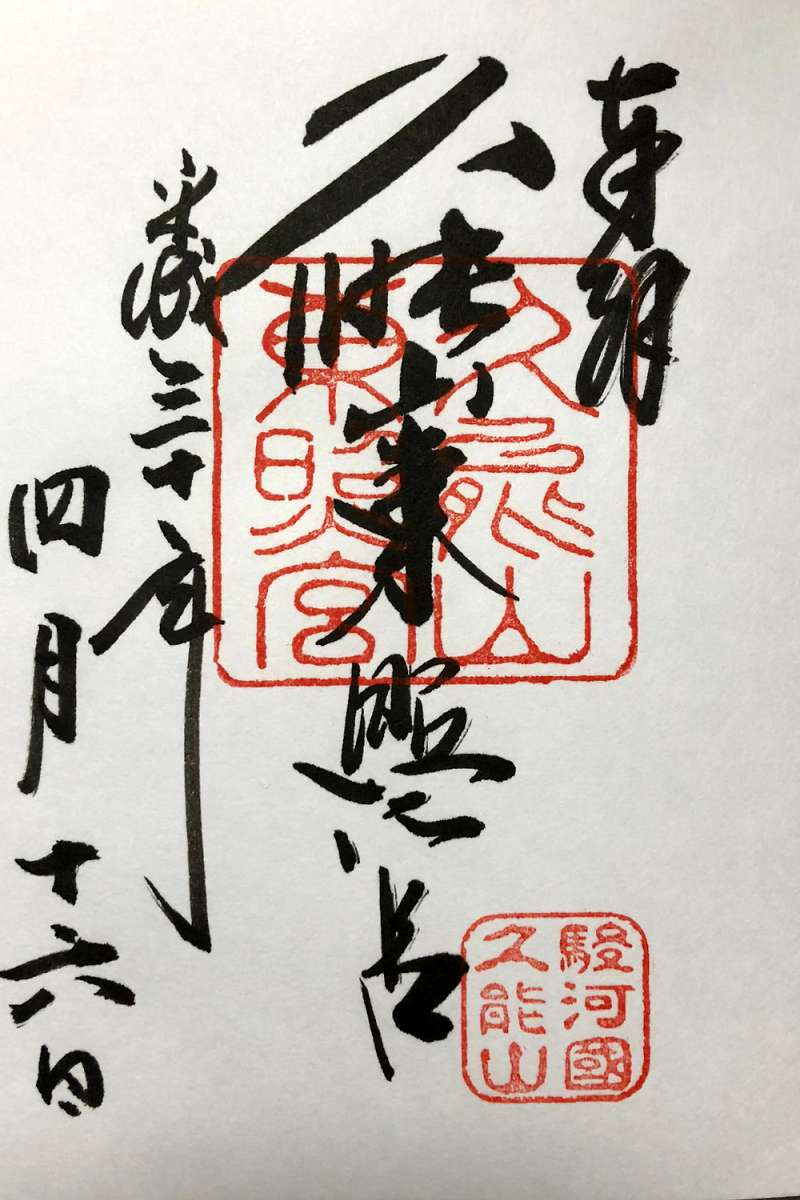 奉拝
久能山東照宮
平成三十年
四月十六日
久能山
東照宮
駿河國
久能山